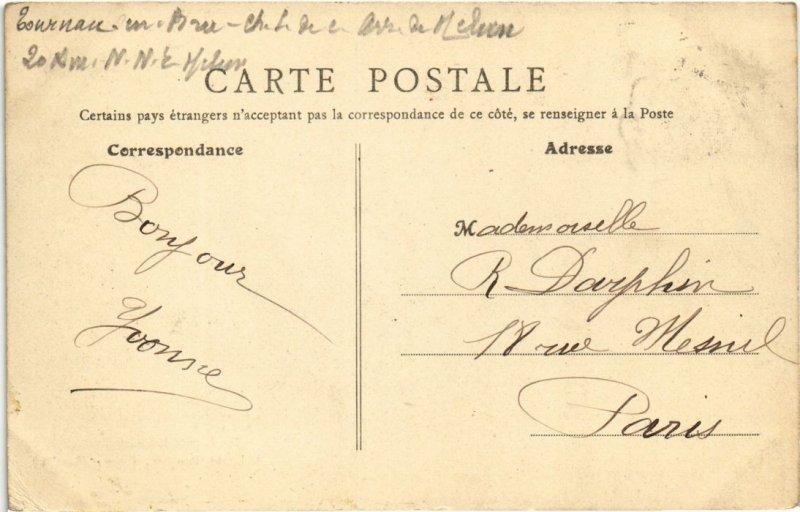 Tournan-en-Brie - Ch. L. de c. Arr. de Melun
20 Km. N.N.E Melun
CARTE POSTALE
Certains pays étrangers n'acceptant pas la correspondance de ce côté, se renseigner à la Poste
Correspondance
Bonjour
Yvonne
Adresse
Mademoiselle
R Darphin
18 rue Mesnil
Paris